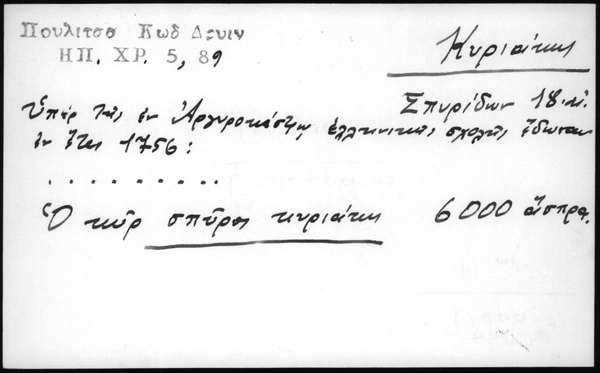 Πουλιτσα Κωδ Δρυιν
ΗΠ. ΧΡ. 5, 89
Κυριάκης
Σπυρίδων 18 αἰ.
Ὑπὲρ τῆς ἐν Ἀργυροκάστρῳ ἑλληνικῆς σχολῆς ἔδωσαν
ἐν ἔτει 1756:
. . . . . . . . . .
Ὁ κὺρ σπῦρος κυριάκης 6000 ἄσπρα.